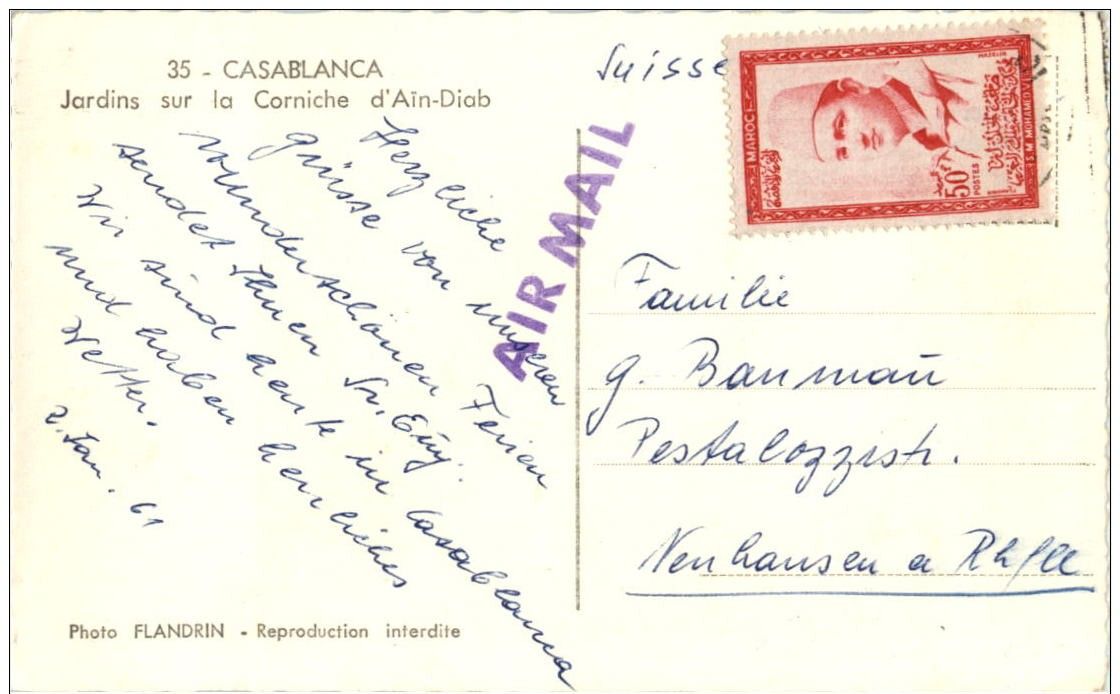 35 - CASABLANCA
Jardins sur la Corniche d'Aïn-Diab
Herzliche
grüsse von unseren
wunderschönen Ferien
sendet Ihnen Fr. Eüg.
Wir sind heute in Casablanca
und haben herrliches
Wetter.
2. Jan. 61
Photo FLANDRIN - Reproduction interdite
AIR MAIL
Suisse
MAROC
50F
POSTES
S.M. MOHAMED V
MAZELIN
Familie
g. Baumañ
Pestalozzistr.
Neuhausen a Rhfll